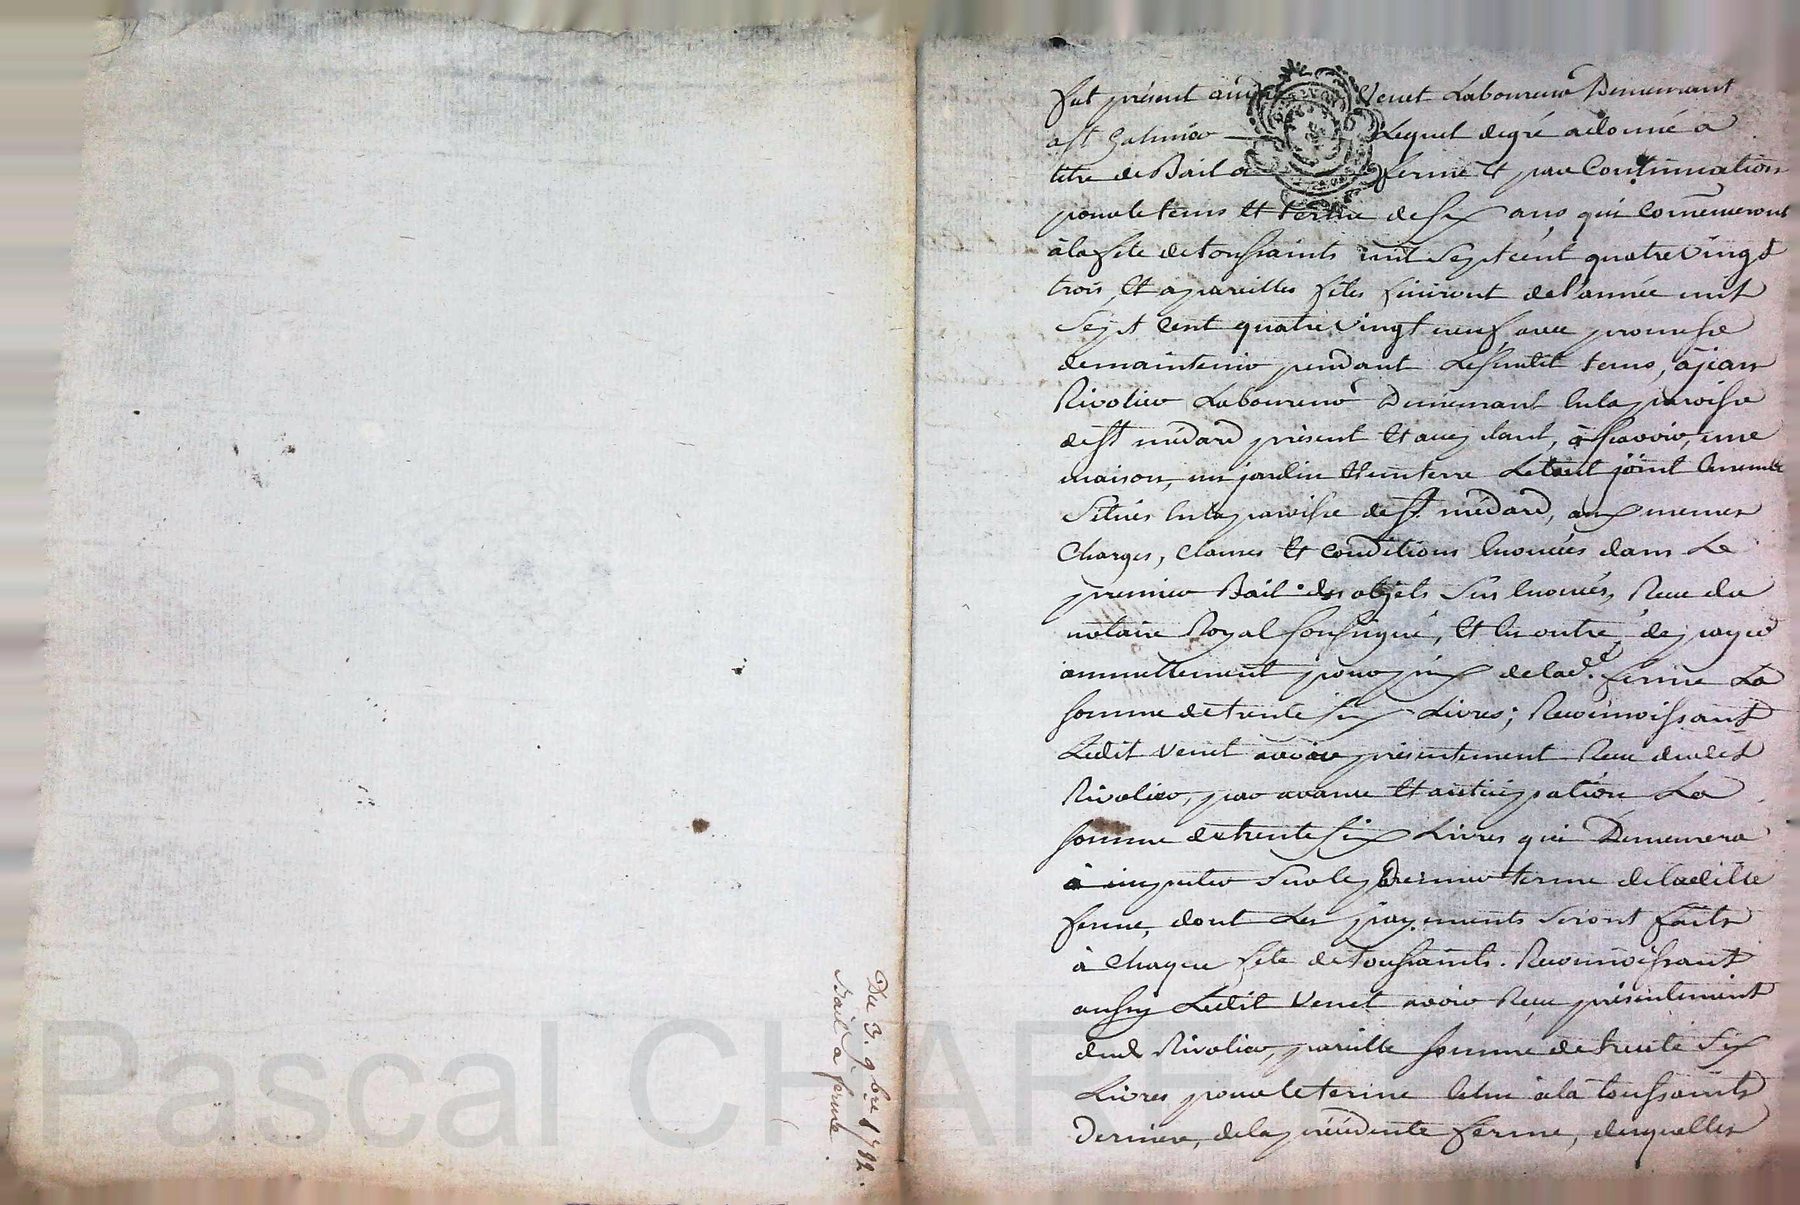 Du 3. 9bre 1782.
Bail a ferme.
fut présent Venet Laboureur Demeurant
a St Galmier Lequel de gré a donné a
titre de Bail a ferme et par Continuation
pour le tems et terme de six ans qui Commenceront
à la fete de toussaints mil Sept cent quatre Vingt
trois, et a pareilles fetes finiront de l'année mil
Sept Cent quatre Vingt neuf, avec promesse
de maintenir pendant Le susdit tems, à jean
Rivolier Laboureur Demeurant en la paroisse
de St médard présent et acceptant, à sçavoir, une
maison, un jardin et un terre Le tout joint Ensemble
Situés en la paroisse de St médard, aux memes
Charges, clauses et conditions Enoncées dans Le
premier Bail des objets Sus Enoncés, Recu du
notaire Royal soussigné, et en outre, de payer
annuellement pour prix de lad.e ferme La
somme de trente six Livres; Reconnoissant
Ledit Venet avoir présentement Recu dudit
Rivolier, par avance et anticipation La
somme de trente six Livres qui Demeurera
à imputer Sur le Dernier terme de la ditte
ferme, dont Les payements Seront faits
à Chaque fete de toussaints. Reconnoissant
aussy Ledit Venet avoir Recu présentement
dud. Rivolier, pareille somme de trente Six
Livres pour le terme Echu à la toussaints
Derniere, de la précédente ferme, desquelles
Pascal CHAR